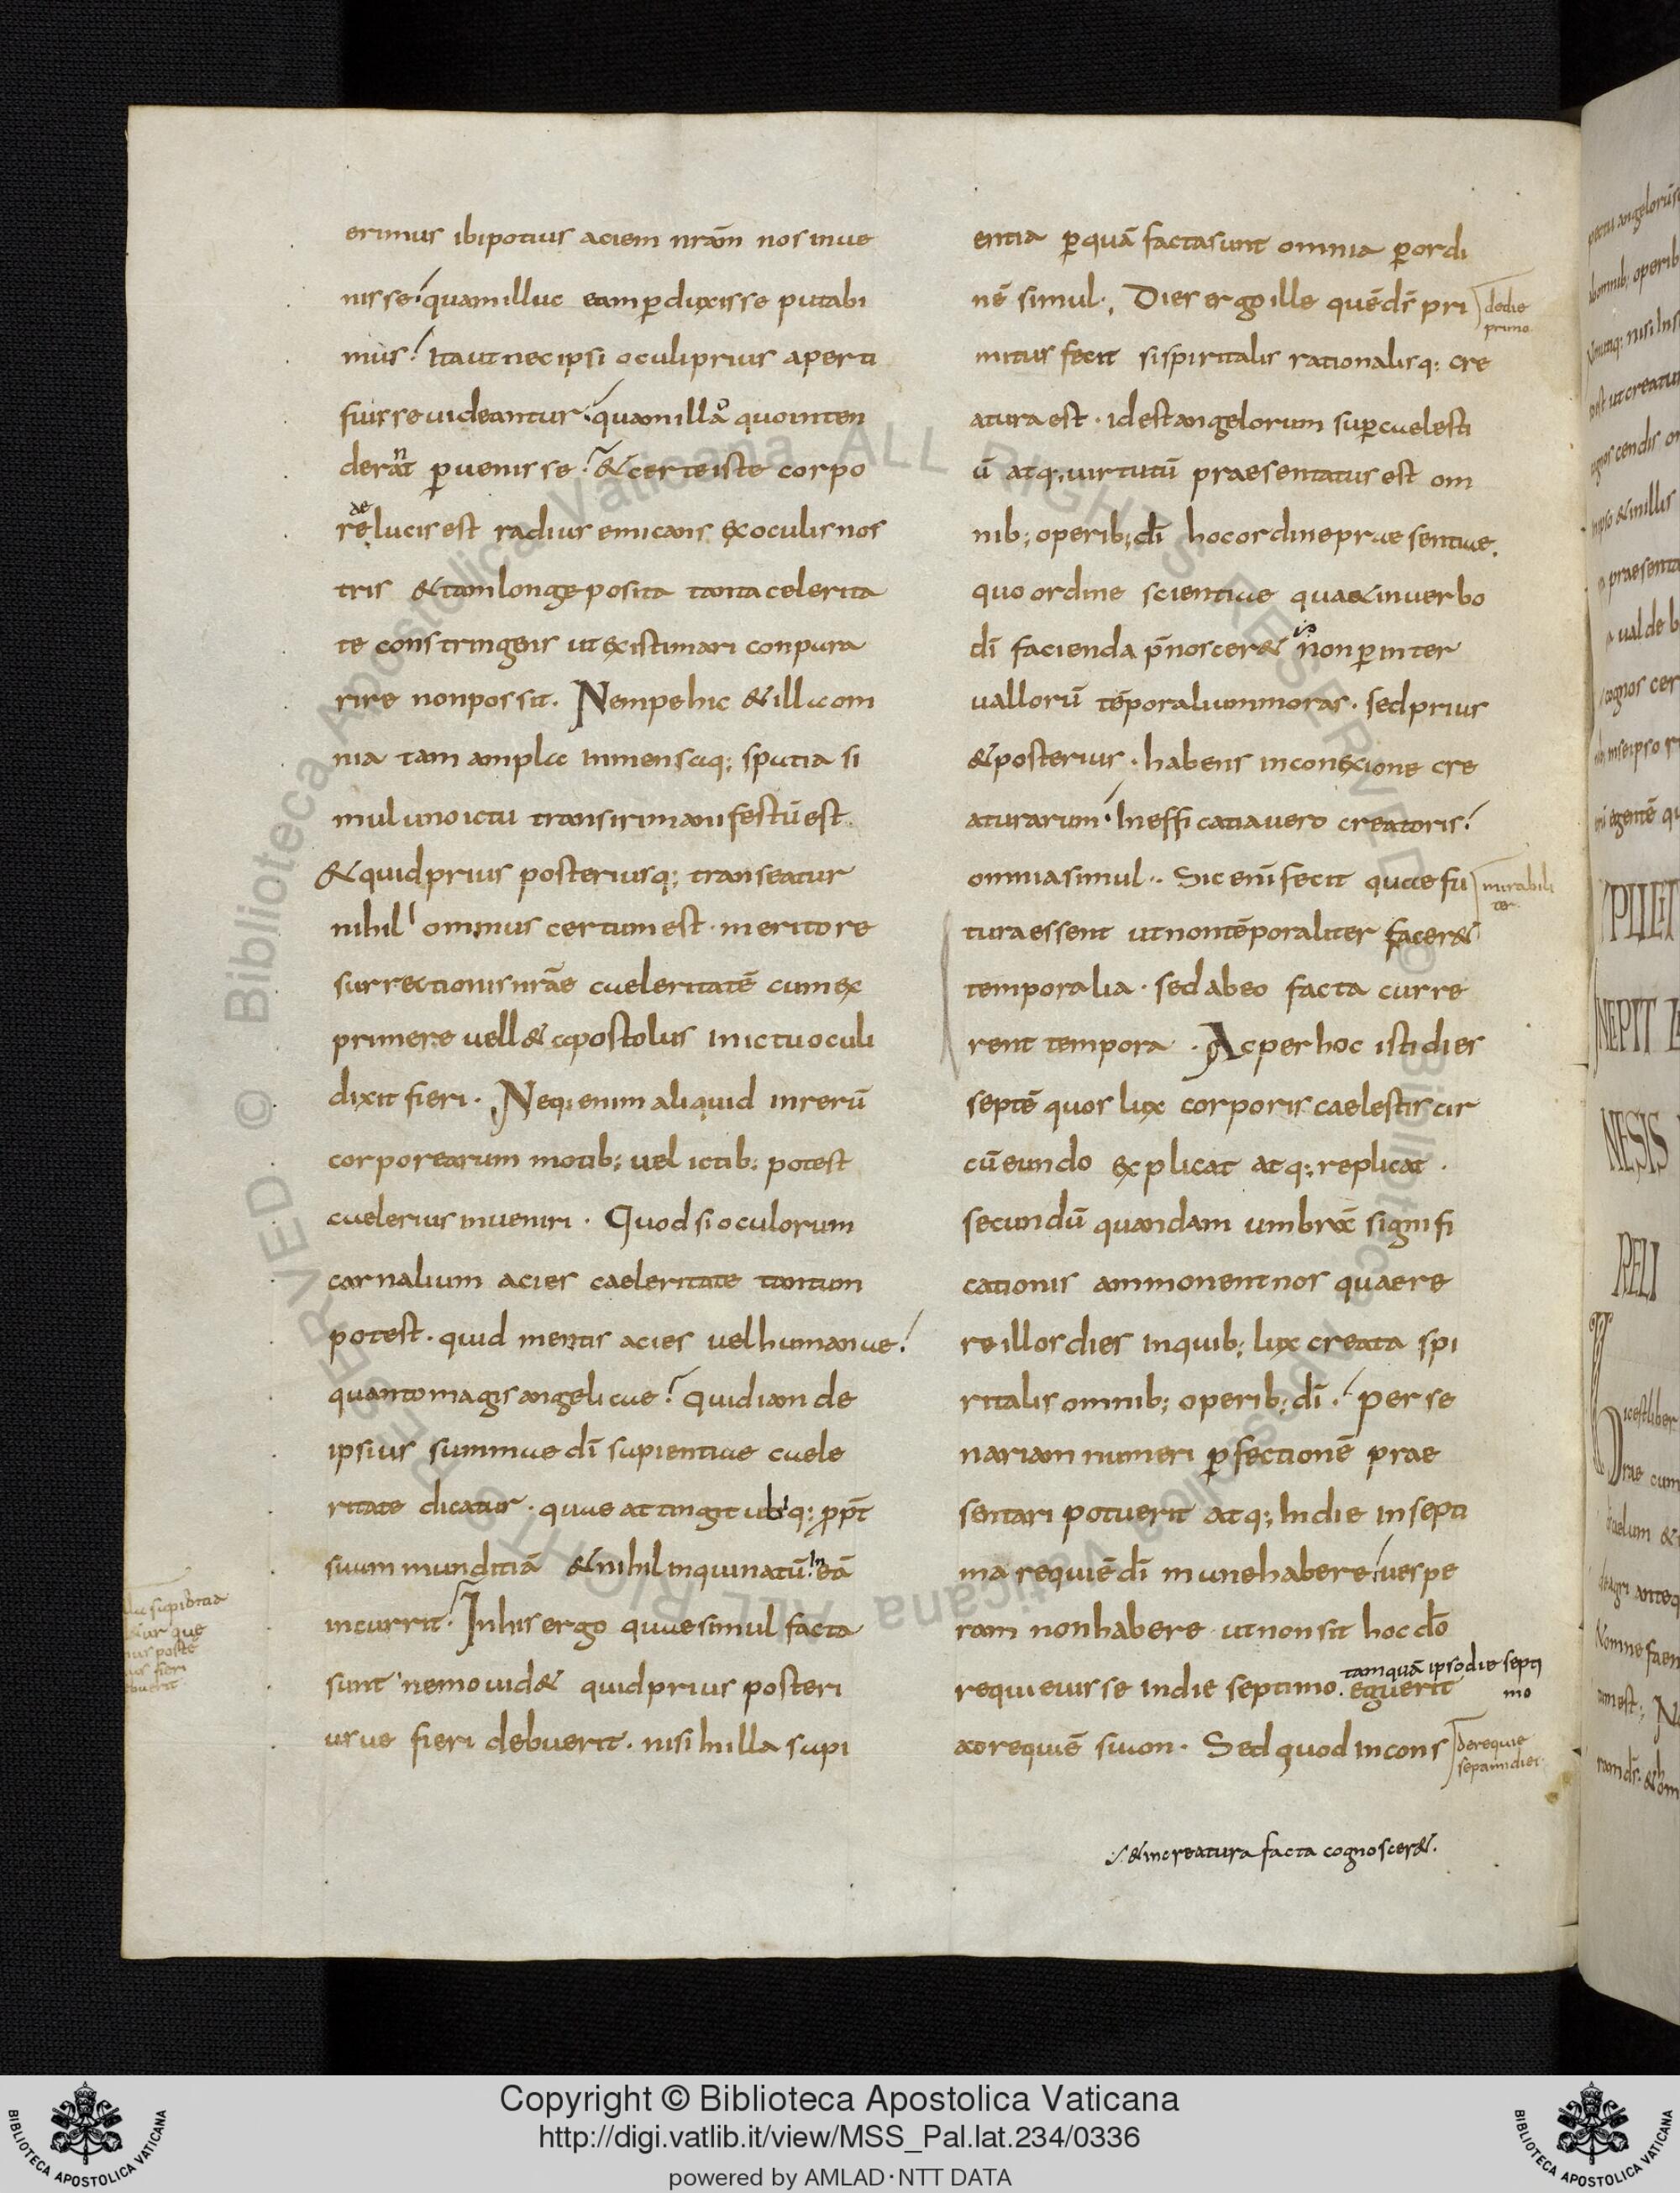 erimus ibi potius aciem nr̄am nos inue
nisse quam illuc eam ꝑduxisse putabi
mus Ita ut nec ipsi oculi prius aperti
fuisse uideantur quam illa quo inten
derant ꝑuenisse & certe iste corpo
reae lucis est radius emicans ex oculis nos
tris & tam longe posita tanta celerita
te constringens ut existimari conpara
rire non possit. Nempe hic & illa om
nia tam ampla inmensaq; spatia si
mul uno ictu transiri manifestū est
& quid prius posteriusq; transeatur
nihil ominus certum est. merito re
surrectionis nr̄ae caeleritatē cum ex
primere uell& apostolus in ictu oculi
dixit fieri. Neq; enim aliquid in rerū
corporearum motib; uel ictib; potest
caelerius inueniri. Quod si oculorum
carnalium acies caeleritate tantum
potest. quid mentis acies uel humanae
quanto magis angelicae Quid iam de
ipsius summae dī sapientiae caele
ritate dicatur. quae attingit ubiq; ꝓpt̄
suam munditiā & nihil inquinatū in eā
incurrit In his ergo quae simul facta
sunt nemo uid& quid prius posteri
usue fieri debuerit. nisi in illa sapi
entia ꝑ quā facta sunt omnia ꝑ ordi
nē simul. Dies ergo ille quē ds̄ pri
mitus fecit si spiritalis rationalisq; cre
atura est. id est angelorum suꝑcaelesti
ū atq; uirtutū praesentatus est om
nib; operib; dī hoc ordine praesentiae.
quo ordine scientiae qua & in uerbo
dī facienda p̄noscer& non ꝑ inter
uallorū tēporalium moras. sed prius
& posterius. habens in conexione cre
aturarum In efficatia uero creatoris
omnia simul. Sic enī fecit quae fu
tura essent ut non tēporaliter facer&
temporalia. sed ab eo facta curre
rent tempora. Ac per hoc isti dies
septē quos lux corporis caelestis cir
cūeundo explicat atq; replicat.
secundū quandam umbrā signifi
cationis ammonent nos quaere
re illos dies in quib; lux creata spi
ritalis omnib; operib; dī. per se
nariam numeri ꝑfectionē prae
sentari potuerit atq; In die in septi
ma requiē dī mane habere uespe
ram non habere ut non sit hoc dō
requieuisse in die septimo. eguerit
tamquā ipso die septi
mo
ad requiē suam. Sed quod in cons
de die
primo
mirabili
ter
de requie
septimi diei
fieri
& in creatura facta cognoscer&.
Copyright © Biblioteca Apostolica Vaticana
http://digi.vatlib.it/view/MSS_Pal.lat.234/0336
powered by AMLAD·NTT DATA
BIBLIOTECA APOSTOLICA VATICANA
BIBLIOTECA APOSTOLICA VATICANA
© Biblioteca Apostolica Vaticana ALL RIGHTS RESERVED
© Biblioteca Apostolica Vaticana ALL RIGHTS RESERVED